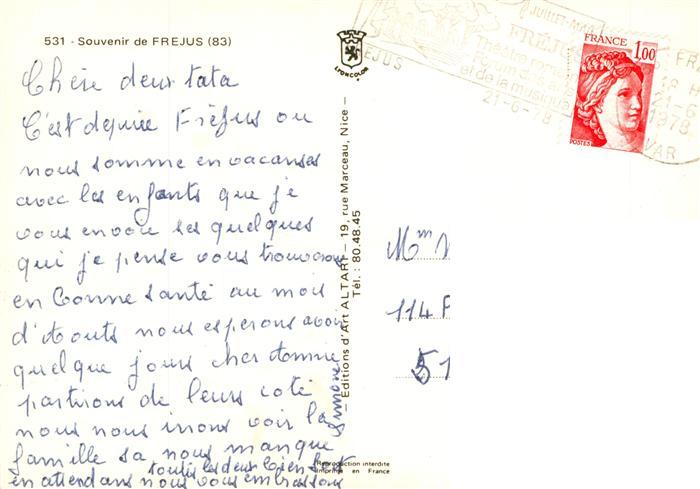 531 - Souvenir de FREJUS (83)
LYONCOLOR
Chère deux tata
C'est depuie Fréjus ou
nous somme en vacanses
avec les enfants que je
vous envoie ses quelques
qui je pense vous trouverons
en bonne santé au mois
d'Aouts nous esperons avoir
quelque jours cher
partirons de leurs coté
nous nous irons voir la
famille sa nous manque
toutes les deux bien fort
en attendans nous vous embrassons
Simone
— Editions d'Art ALTARI — 19, rue Marceau, Nice —
Tél. : 80.48.45
Reproduction interdite
Imprimé en France
JUILLET-
FRÉJUS
Théâtre
Forum des arts
et de la musique
21-6-78
FRANCE
1,00
POSTES
FR
18 H
21-6
1978
VAR
Mm
114
51